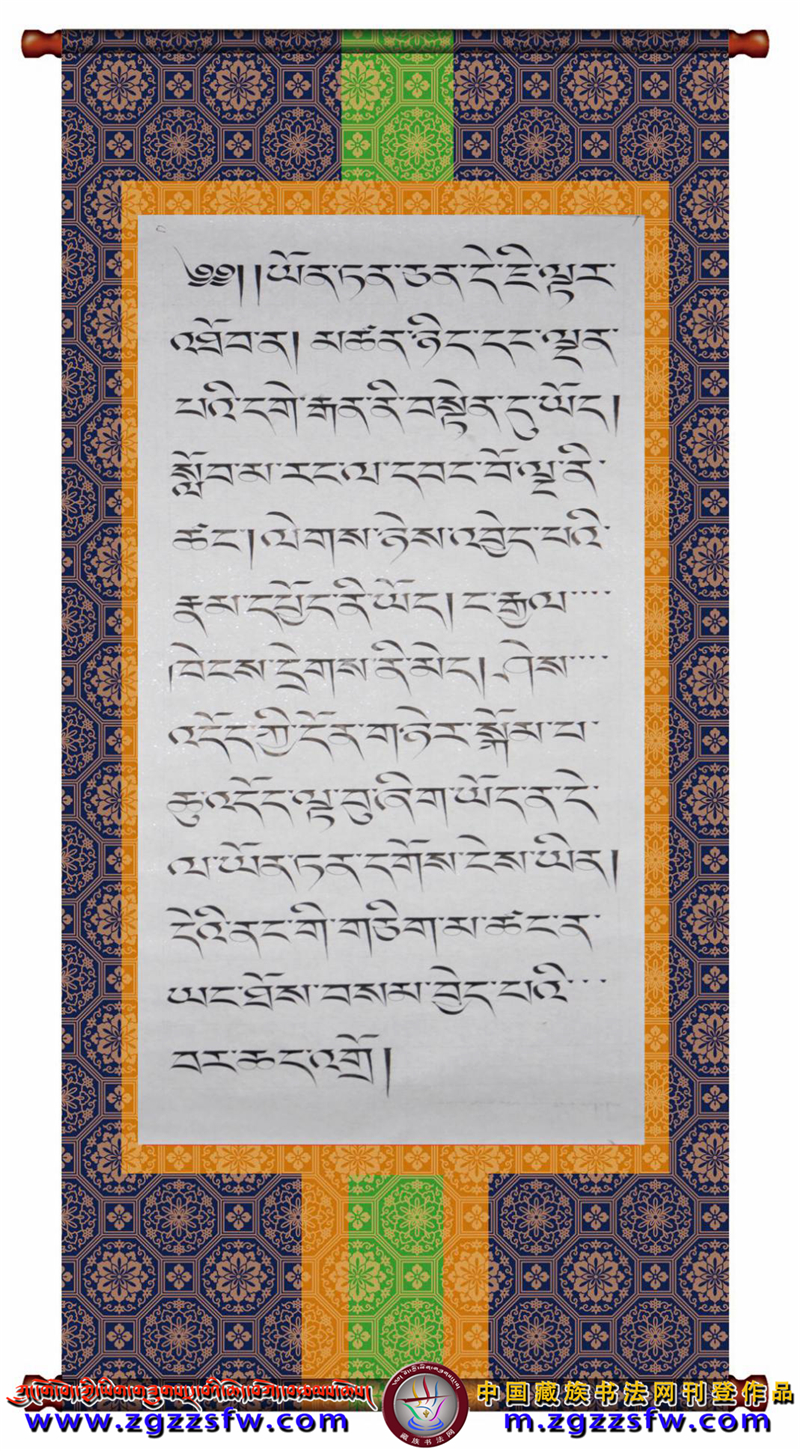 ༄༅། །ཡོན་ཏན་ཅན་དེ་ཇི་ལྟར་
འཐོབ་ན། མཚན་ཉིད་དང་ལྡན་
པའི་དགེ་རྒན་ནི་བསྟེན་དུ་ཡོད།
སློབ་མ་རང་ལ་དབང་པོ་ལྔ་ནི་
ཚང་། ལེགས་ཉེས་འབྱེད་པའི་
རྣམ་དཔྱོད་ནི་ཡོད། ང་རྒྱལ་
།ཁེངས་དྲེགས་ནི་མེད། ཤེས་
འདོད་ཀྱི་དོན་གཉེར་སྐོམ་པ་
ཆུ་འདོད་ལྟ་བུ་ཞིག་ཡོད་ན་དེ་
ལ་ཡོན་ཏན་དགོས་ངེས་ཡིན།
དེའི་ནང་གི་གཅིག་མ་ཚང་ན་
ཡང་ཐོས་བསམ་བྱེད་པའི་
བར་ཆད་འགྲོ།
中国藏族书法网刊登作品
www.zgzzsfw.com
m.zgzzsfw.com
藏族书法网